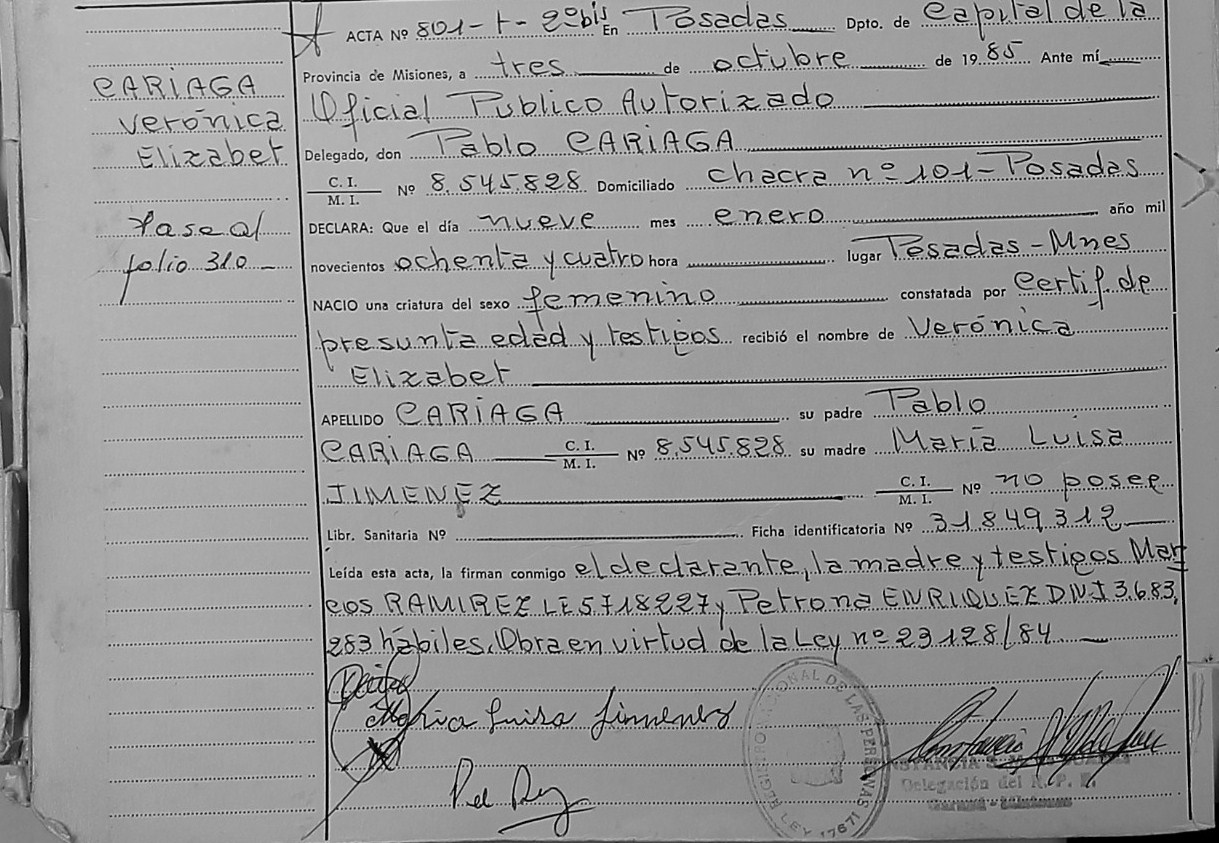 ACTA Nº 801-t-2º bis En Posadas Dpto. de Capital de la
Provincia de Misiones, a tres de octubre de 1985 Ante mí
Oficial Público Autorizado
Delegado, don Pablo CARIAGA
C. I. / M. I. Nº 8.545.828 Domiciliado chacra nº 101 - Posadas
DECLARA: Que el día nueve mes enero año mil
novecientos ochenta y cuatro hora lugar Posadas - Mnes
NACIO una criatura del sexo femenino constatada por Certif. de
presunta edad y testigos recibió el nombre de Verónica
Elizabet
APELLIDO CARIAGA su padre Pablo
CARIAGA C. I. / M. I. Nº 8.545.828 su madre María Luisa
JIMENEZ C. I. / M. I. Nº no posee
Libr. Sanitaria Nº Ficha identificatoria Nº 31849312
Leída esta acta, la firman conmigo el declarante, la madre y testigos Mar
cos RAMIREZ LE 5718227 y Petrona ENRIQUEZ DNI 3.683.
283 hábiles. Obra en virtud de la Ley nº 23128/84
CARIAGA
Verónica
Elizabet
Pasa al
folio 310
María Luisa Jimenez
REGISTRO NACIONAL DE LAS PERSONAS
LEY 17671
Delegación del R. P. P.